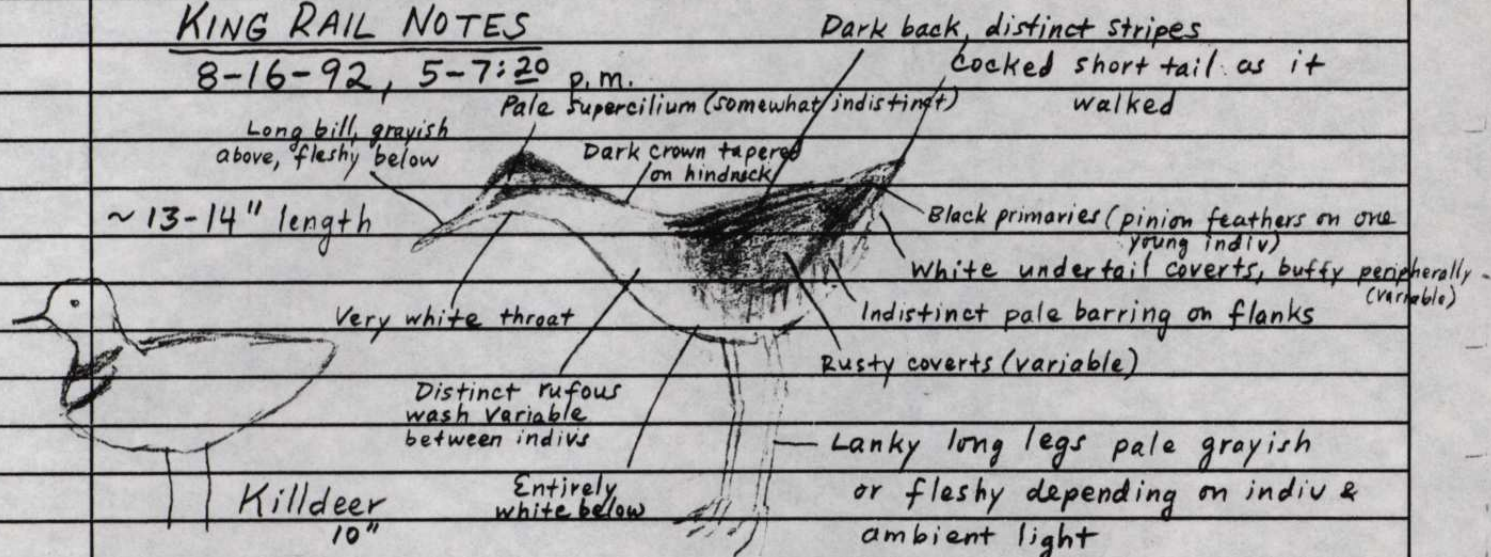 KING RAIL NOTES
8-16-92, 5-7:20 p.m.
Dark back, distinct stripes
Cocked short tail as it
walked
Pale supercilium (somewhat indistinct)
Long bill, grayish
above, fleshy below
Dark crown tapered
on hindneck
~ 13-14" length
Black primaries (pinion feathers on one
young indiv)
White undertail coverts, buffy peripherally
(variable)
Very white throat
Indistinct pale barring on flanks
Rusty coverts (variable)
Distinct rufous
wash variable
between indivs
Lanky long legs pale grayish
or fleshy depending on indiv &
ambient light
Entirely
white below
Killdeer
10"